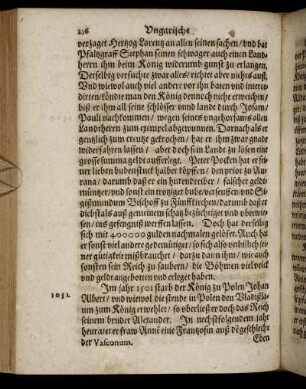 216 Ungarische
verzaget Hertzog Lorentz an allen seinen sachen/ vnd bat
Pfaltzgraff Stephan seinen schwager auch einen Land-
herrn ihm beim König widerumb gunst zu erlangen.
Derselbig versuchte zwar alles/ richtet aber nichts auß.
Vnd wiewol auch viel andere vor ihn baten vnd interce-
dirten/ köndte man den König dennoch nicht erweichen/
biß er ihm all seine schlösser vnnd landt durch Josam/
Pauli nachkommen/ wegen seines vngehorsams allen
Landherrn zum exempel abgewunnen. Darnach als er
gentzlich zum creutz gekrochen/ hat er ihm zwar gnad
widerfahren lassen / aber doch sein Landt zu lösen eine
grosse summa geldt aufferlegt. Peter Pocken hat er sei-
ner lieben bubenstuck halber köpffen/ den prior zu Au-
rana/ darumb daß er ein hurentreiber / falscher geldt
müntzer/ vnd sonst ein trotziger bube war seuffen vnd Si-
gißmundum Bischoff zu Fünffkirchen/ darumb daß er
diebstals auß gemeinem schatz bezüchtiget vnd vberwie-
sen / ins gefengniß werffen lassen. Doch hat derselbig
sich mit 400000 gulden nachmalen gelöset. Auch hat
er sonst viel andere gedemütiger/ so sich also vnbillich sei-
ner gütigkeit mißbrauchet / dorzu dann ihm/ wie auch
sonsten sein Reich zu saubern/ die Böhmen viel volck
vnd geldt angeboten vnd erleget haben.
1051. Im jahr 1501 starb der König zu Polen Johan
Albert/ vnd wiewol die stende in Polen den Vladißla-
um zum König erwehlet/ so vberließ er doch das Reich
seinem bruder Alexander. In nechstfolgendem jahr
heuratet er fraw Annẽ eine Frantzösin auß dẽ geschlecht
der Vasconum. Eben